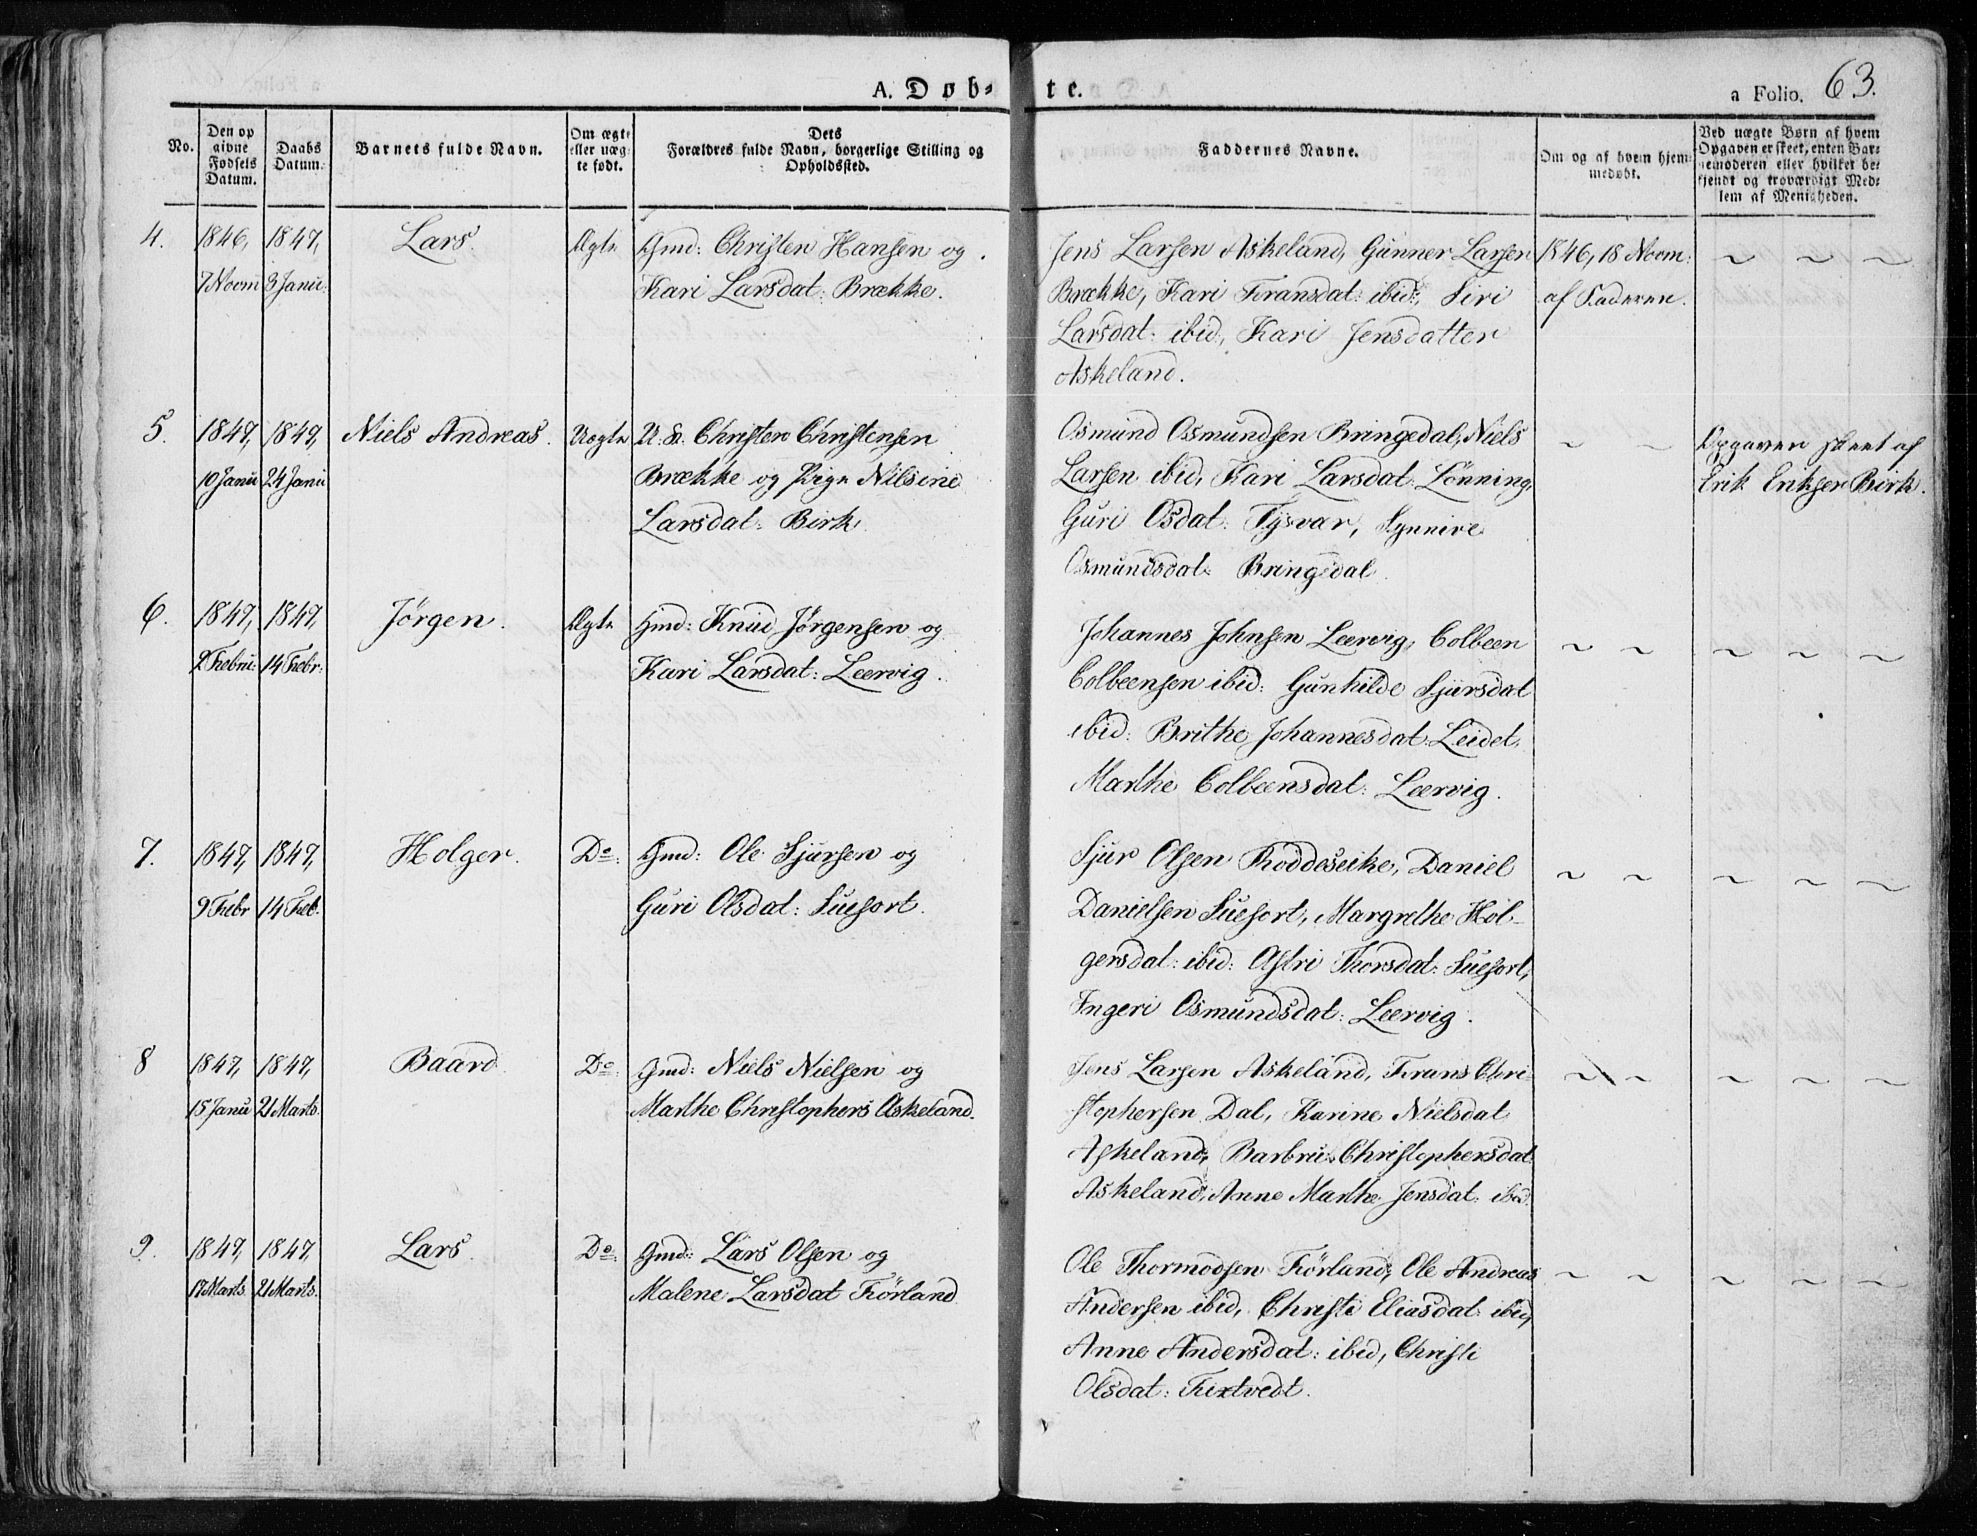 A. Døb-te.
a Folio. 63.
No.
Den op
givne
Fødsels
Datum.
Daabs
Datum.
Barnets fulde Navn.
Om ægte
eller uæg-
te født.
Dets
Forældres fulde Navn, borgerlige Stilling og
Opholdssted.
Faddernes Navne.
Om og af hvem hjem-
medøbt.
Ved uægte Børn af hvem
Opgaven er skeet, enten Bar-
nemoderen eller hvilket be-
kjendt og troværdigt Med-
lem af Menigheden.
4. 1846, 1847, Lars. Ægte Gmd: Christen Hansen og
7 Novm 3 Janu: Kari Larsdat: Brække.
Jens Larsen Askeland, Gunner Larsen
Brække, Kari Fransdat: ibid:, Siri
Larsdat: ibid:, Kari Jensdatter
Askeland.
1846, 18 Novm:
af Faderen.
5. 1847, 1847, Niels Andreas. Uægte U. K. Christen Christensen
10 Janu 24 Janu Brække og Pige Nilsine
Larsdat: Birk.
Osmund Osmundsen Bringedal, Niels
Larsen ibid, Kari Larsdat: Lønning,
Guri Osdat: Tysvær, Synnive
Osmundsdat: Bringedal.
Opgaven skeet af
Erik Eriksen Birk.
6. 1847, 1847, Jørgen. Ægte Gmd: Knud Jørgensen og
2 Febru: 14 Febr: Kari Larsdat: Leervig.
Johannes Johnsen Leervig, Colbeen
Colbeensen ibid: Gunhilde Sjursdat
ibid: Brithe Johannesdat: Leidet,
Marthe Colbeensdat: Leervig.
7. 1847, 1847, Holger. Do: Gmd: Ole Sjursen og
9 Febr 14 Feb. Guri Olsdat: Suefort.
Sjur Olsen Roddeseike, Daniel
Danielsen Suefort, Margrethe Hol-
gersdat: ibid: Astri Thorsdat: Suefort,
Ingeri Osmundsdat: Leervig.
8 1847, 1847, Baard Do: Gmd: Niels Nielsen og
15 Janu 21 Marts. Marthe Christophers Askeland.
Jens Larsen Askeland, Frans Chri-
stophersen Dal, Karine Nielsdat
Askeland, Barbru Christophersdat
Askeland, Anne Marthe Jensdat: ibid.
9. 1847, 1847, Lars. Do: Gmd: Lars Olsen og
17 Marts 21 Marts. Malene Larsdat Førland
Ole Thormodsen Førland, Ole Andreas
Andersen ibid, Christi Eliasdat: ibid,
Anne Andersdat: ibid, Christi
Olsdat: Fixtvedt.